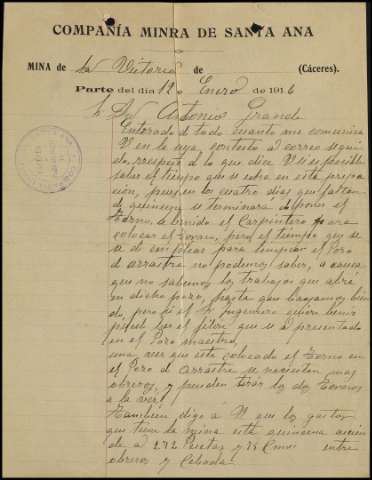 COMPAÑÍA MINRA DE SANTA ANA
MINA de La Victoria de (Cáceres).
Parte del día 12 e Enero de 1916
S. D. Antonio Granda
Enterado de todo cuanto me comunica
V en la suya, contesto a correo segui
do, respecto a lo que dice V si es posible
saber el tiempo que se in en esta prepa
ación, pues en los cuatro dias que faltan
de quincena se terminará de poner el
Torno, a benido el Carpintero para
colocar el Torno, pero el tiempo que se
a de emplear para limpiar el Pozo
d arrastre no podemos saber, a causa
que no sabemos los trabajos que abrá
en dicho pozo, hasta que bayamos bien
do, pero si el S. Ingeniero quiere benir
puede ber el filon que se a presentado
en el Pozo maestro,
una vez que esté colocado el Torno en
el Pozo d arrastre se necesitan mas
obreros, y pueden tirar los dos Tornos
a la vez.
Tambien digo a V que los gastos
que tiene la mina esta quincena acien
de a 272 Pesetas y 75 Cmos entre
obreros y Cebada